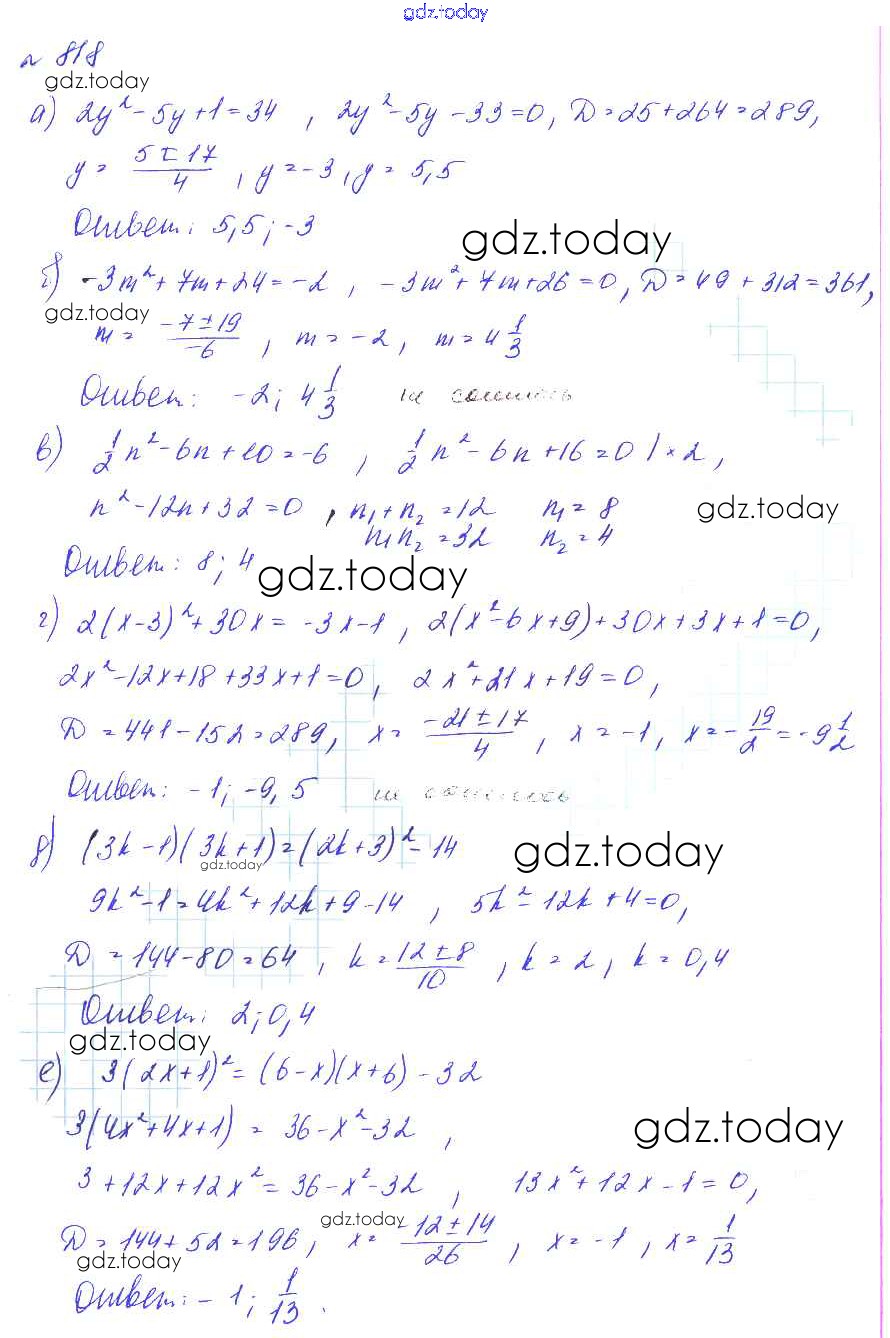 gdz.today
№ 818
gdz.today
а) 2y² - 5y + 1 = 34 , 2y² - 5y - 33 = 0, D = 25 + 264 = 289,
y = (5 ± 17)/4 , y = -3, y = 5,5
Ответ: 5,5; -3
gdz.today
б) -3m² + 7m + 24 = -2 , -3m² + 7m + 26 = 0, D = 49 + 312 = 361,
gdz.today
m = (-7 ± 19)/-6 , m = -2, m = 4 1/3
Ответ: -2; 4 1/3 не сошлось
в) 1/2 n² - 6n + 10 = -6 , 1/2 n² - 6n + 16 = 0 | × 2,
n² - 12n + 32 = 0 , n₁ + n₂ = 12 n₁ = 8
gdz.today
n₁n₂ = 32 n₂ = 4
Ответ: 8; 4
gdz.today
г) 2(x-3)² + 30x = -3x - 1 , 2(x² - 6x + 9) + 30x + 3x + 1 = 0,
2x² - 12x + 18 + 33x + 1 = 0, 2x² + 21x + 19 = 0,
D = 441 - 152 = 289, x = (-21 ± 17)/4 , x = -1, x = -19/2 = -9 1/2
Ответ: -1; -9,5 не сошлось
д) (3k - 1)(3k + 1) = (2k + 3)² - 14
gdz.today
gdz.today
9k² - 1 = 4k² + 12k + 9 - 14 , 5k² - 12k + 4 = 0,
D = 144 - 80 = 64 , k = (12 ± 8)/10 , k = 2, k = 0,4
Ответ: 2; 0,4
gdz.today
е) 3(2x + 1)² = (6 - x)(x + 6) - 32
3(4x² + 4x + 1) = 36 - x² - 32 ,
gdz.today
3 + 12x + 12x² = 36 - x² - 32 , 13x² + 12x - 1 = 0,
gdz.today
D = 144 + 52 = 196, x = (-12 ± 14)/26 , x = -1 , x = 1/13
gdz.today
Ответ: -1; 1/13.